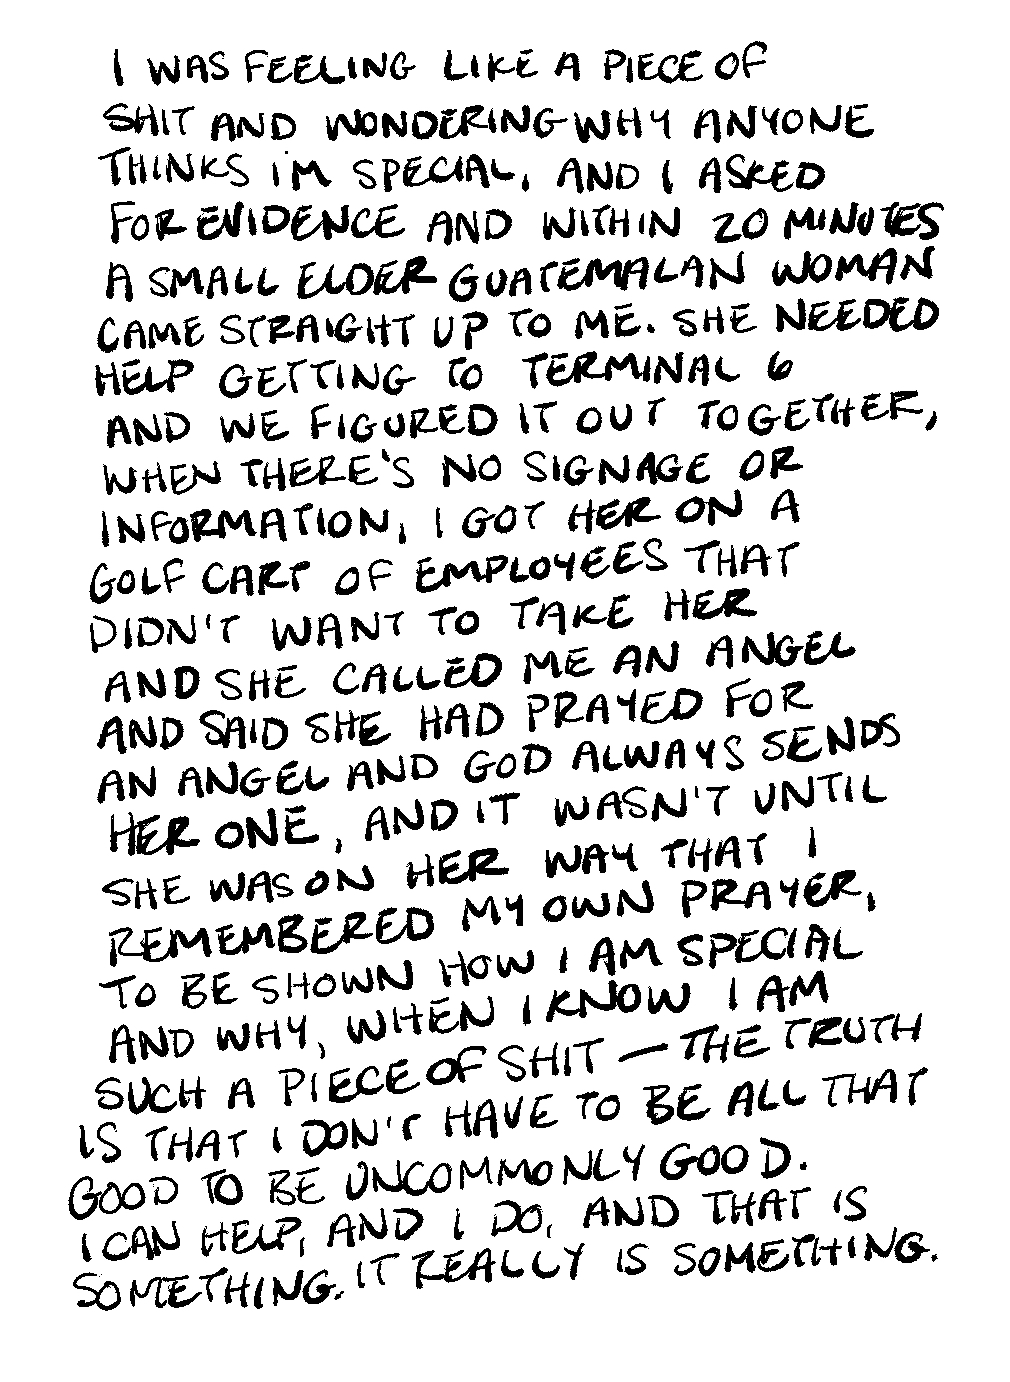 I WAS FEELING LIKE A PIECE OF
SHIT AND WONDERING WHY ANYONE
THINKS I'M SPECIAL, AND I ASKED
FOR EVIDENCE AND WITHIN 20 MINUTES
A SMALL ELDER GUATEMALAN WOMAN
CAME STRAIGHT UP TO ME. SHE NEEDED
HELP GETTING TO TERMINAL 6
AND WE FIGURED IT OUT TOGETHER,
WHEN THERE'S NO SIGNAGE OR
INFORMATION, I GOT HER ON A
GOLF CART OF EMPLOYEES THAT
DIDN'T WANT TO TAKE HER
AND SHE CALLED ME AN ANGEL
AND SAID SHE HAD PRAYED FOR
AN ANGEL AND GOD ALWAYS SENDS
HER ONE, AND IT WASN'T UNTIL
SHE WAS ON HER WAY THAT I
REMEMBERED MY OWN PRAYER,
TO BE SHOWN HOW I AM SPECIAL
AND WHY, WHEN I KNOW I AM
SUCH A PIECE OF SHIT — THE TRUTH
IS THAT I DON'T HAVE TO BE ALL THAT
GOOD TO BE UNCOMMONLY GOOD.
I CAN HELP, AND I DO, AND THAT IS
SOMETHING. IT REALLY IS SOMETHING.